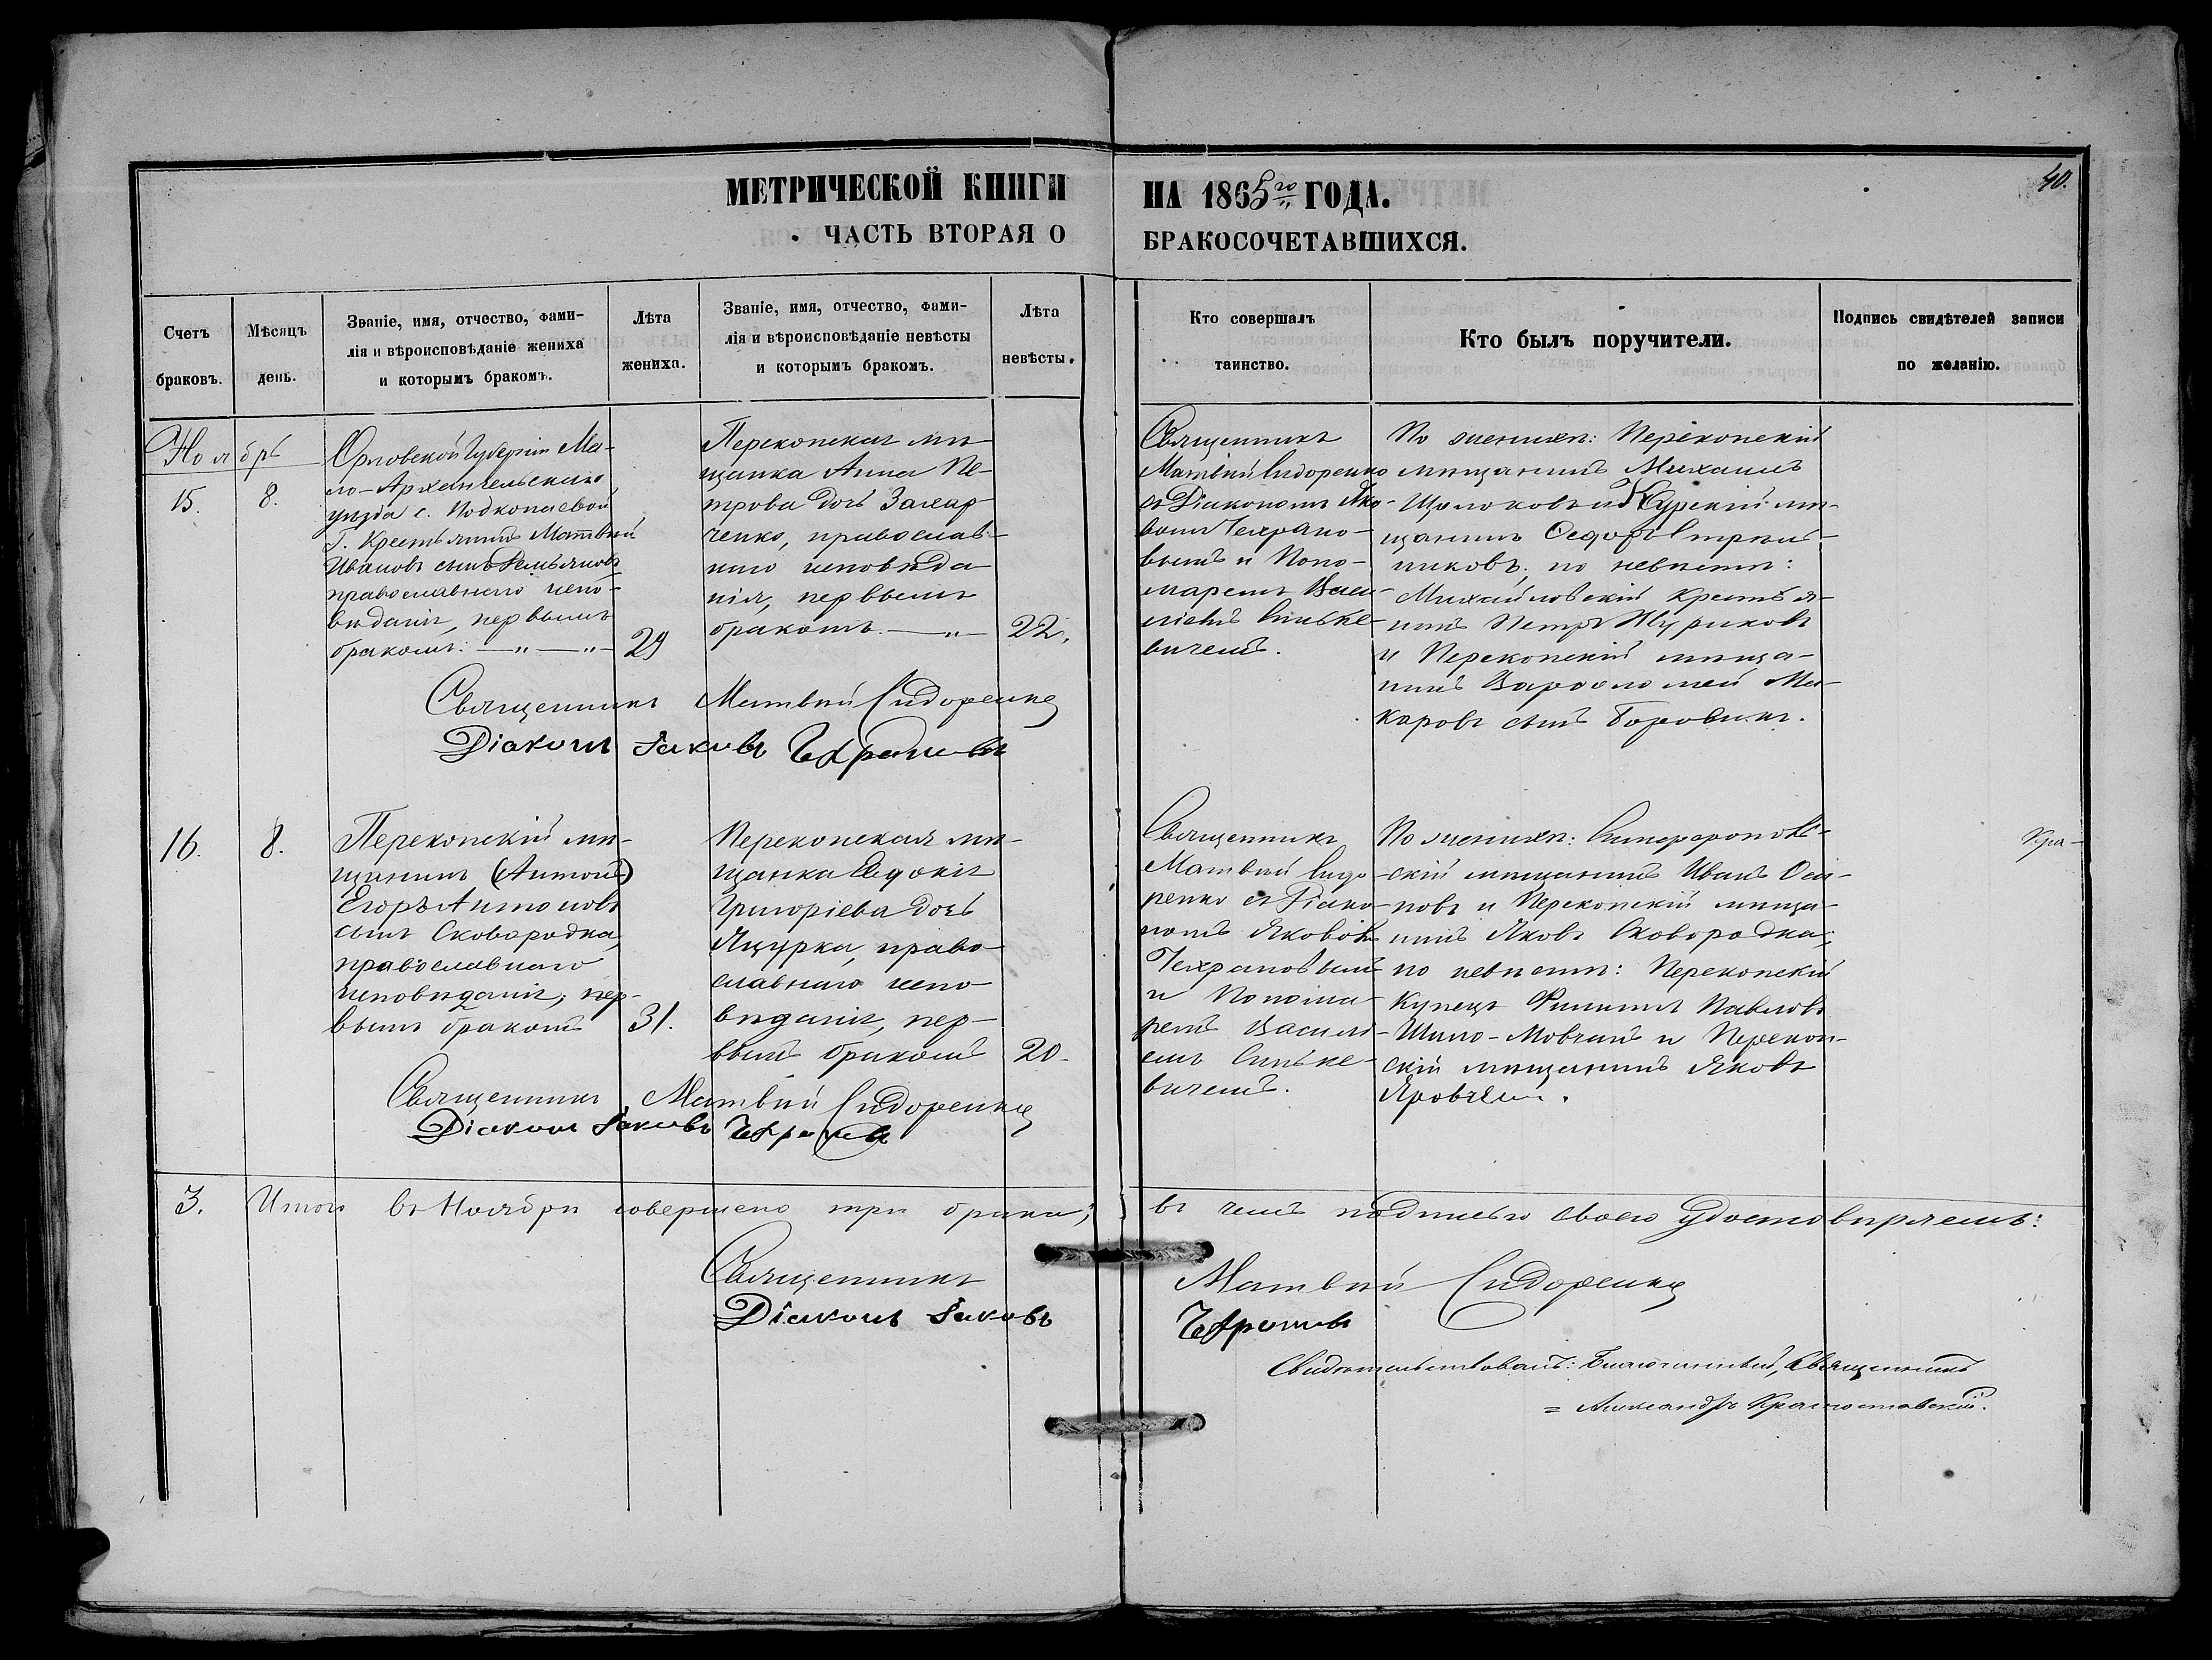 40.
МЕТРИЧЕСКОЙ КНИГИ НА 1865го ГОДА.
ЧАСТЬ ВТОРАЯ О БРАКОСОЧЕТАВШИХСЯ.
Счетъ
браковъ.
Мѣсяцъ
день.
Званіе, имя, отчество, фами-
лія и вѣроисповѣданіе жениха
и которымъ бракомъ.
Лѣта
жениха.
Званіе, имя, отчество, фами-
лія и вѣроисповѣданіе невѣсты
и которымъ бракомъ.
Лѣта
невѣсты.
Кто совершалъ
таинство.
Кто былъ поручители.
Подпись свидѣтелей записи
по желанію.
Ноябрь
15.
8.
Орловской Губерніи Ма-
ло-Архангельскаго
уѣзда с. Подкопаевой
Г. Крестьянинъ Матвѣй
Ивановъ сынъ Емельяновъ
православнаго испо-
вѣданія, первымъ
бракомъ: — " — " —
29
Перекопская мѣ-
щанка Анна Пе-
трова дочь Захар-
ченко, православ-
наго исповѣда
нія, первымъ
бракомъ. — " —
22.
Священникъ
Матвѣй Сидоренко
съ Діакономъ Яко-
вомъ Чехрано-
вымъ и Поно-
маремъ Васи-
ліемъ Синьке-
вичемъ.
По женихѣ: Перекопскій
мѣщанинъ Михаилъ
Щолоковъ и Курскій мѣ-
щанинъ Ѳедоръ Стрѣль-
никовъ. по невѣстѣ:
Михайловскій крестья-
нинъ Петръ Журиковъ
и Перекопскій мѣща-
нинъ Варѳоломей Ма-
каровъ сынъ Боровикъ.
Священникъ Матвѣй Сидоренко
Діаконъ Іаковъ Чехрановъ
16.
8.
Перекопскій мѣ-
щанинъ (Антонъ)
Егоръ Антоновъ
сынъ Сковородка,
православнаго
исповѣданія, пер-
вымъ бракомъ
31.
Перекопская мѣ-
щанка Евдокія
Григоріева дочь
Яцурка, право-
славнаго испо-
вѣданія, пер-
вымъ бракомъ
20.
Священникъ
Матвѣй Сидо
ренко съ Діако-
номъ Яковомъ
Чехрановымъ
и Понома-
ремъ Василі-
емъ Синьке-
вичемъ.
По женихѣ: Симферополь-
скій мѣщанинъ Иванъ Оси-
повъ и Перекопскій мѣща-
нинъ Яковъ Сковородка;
по невѣстѣ: Перекопскій
Купецъ Филиппъ Павловъ
Шило-Мовчанъ и Перекоп-
скій мѣщанинъ Яковъ
Кра-
Священникъ Матвѣй Сидоренко
Діаконъ Іаковъ Чехрановъ
3. Итого въ Ноябрѣ совершено три брака; въ чемъ подписью своею удостовѣряемъ:
Священникъ Матвѣй Сидоренко
Діаконъ Іаковъ Чехрановъ
Свидѣтельствовалъ: Благочинный, Священникъ
= Александръ Красноставскій.